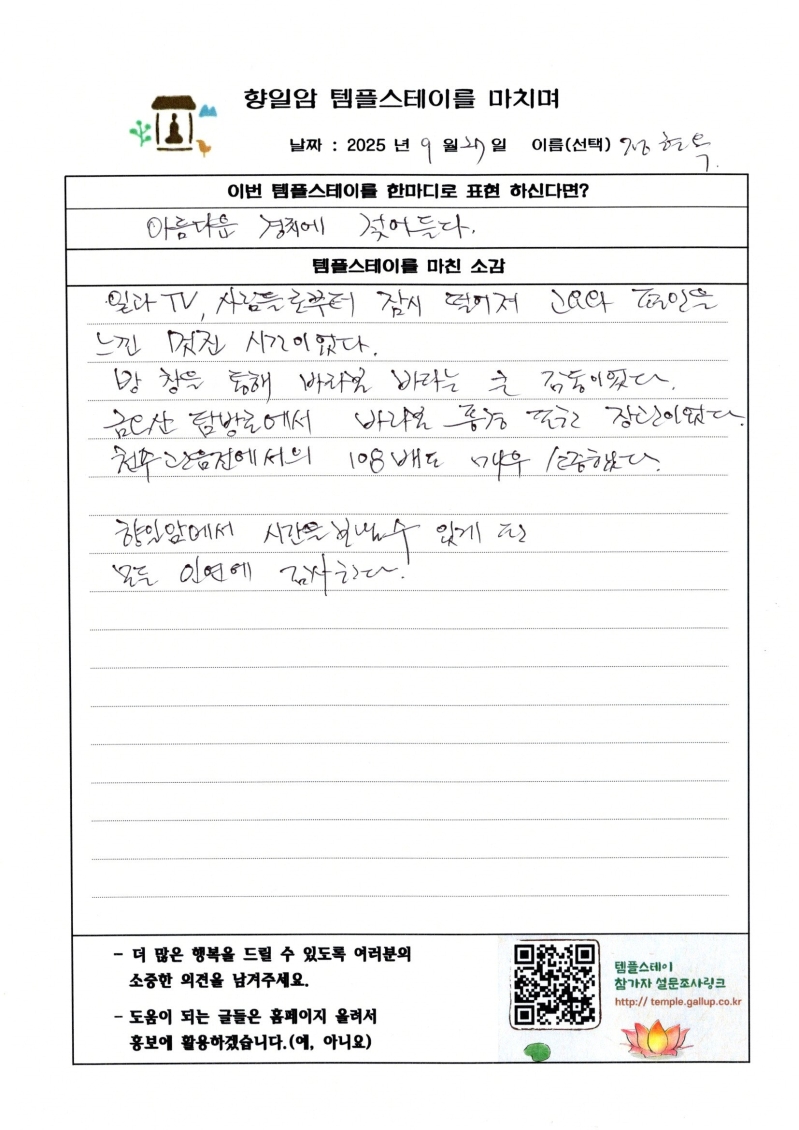 향일암 템플스테이를 마치며
날짜 : 2025 년 9 월 27 일 이름(선택) 정현옥.
이번 템플스테이를 한마디로 표현 하신다면?
아름다운 경치에 젖어들다.
템플스테이를 마친 소감
일과 TV, 사람들로부터 잠시 떨어져 고요와 편안을
느낀 멋진 시간이었다.
방 창을 통해 바라본 바다는 큰 감동이었다.
금오산 탐방로에서 바라본 풍경 또한 장관이었다.
천수관음전에서의 108배도 매우 소중했다.
향일암에서 시간을 보낼 수 있게 된
모든 인연에 감사하다.
- 더 많은 행복을 드릴 수 있도록 여러분의
소중한 의견을 남겨주세요.
- 도움이 되는 글들은 홈페이지 올려서
홍보에 활용하겠습니다.(예, 아니요)
템플스테이
참가자 설문조사링크
http:// temple.gallup.co.kr